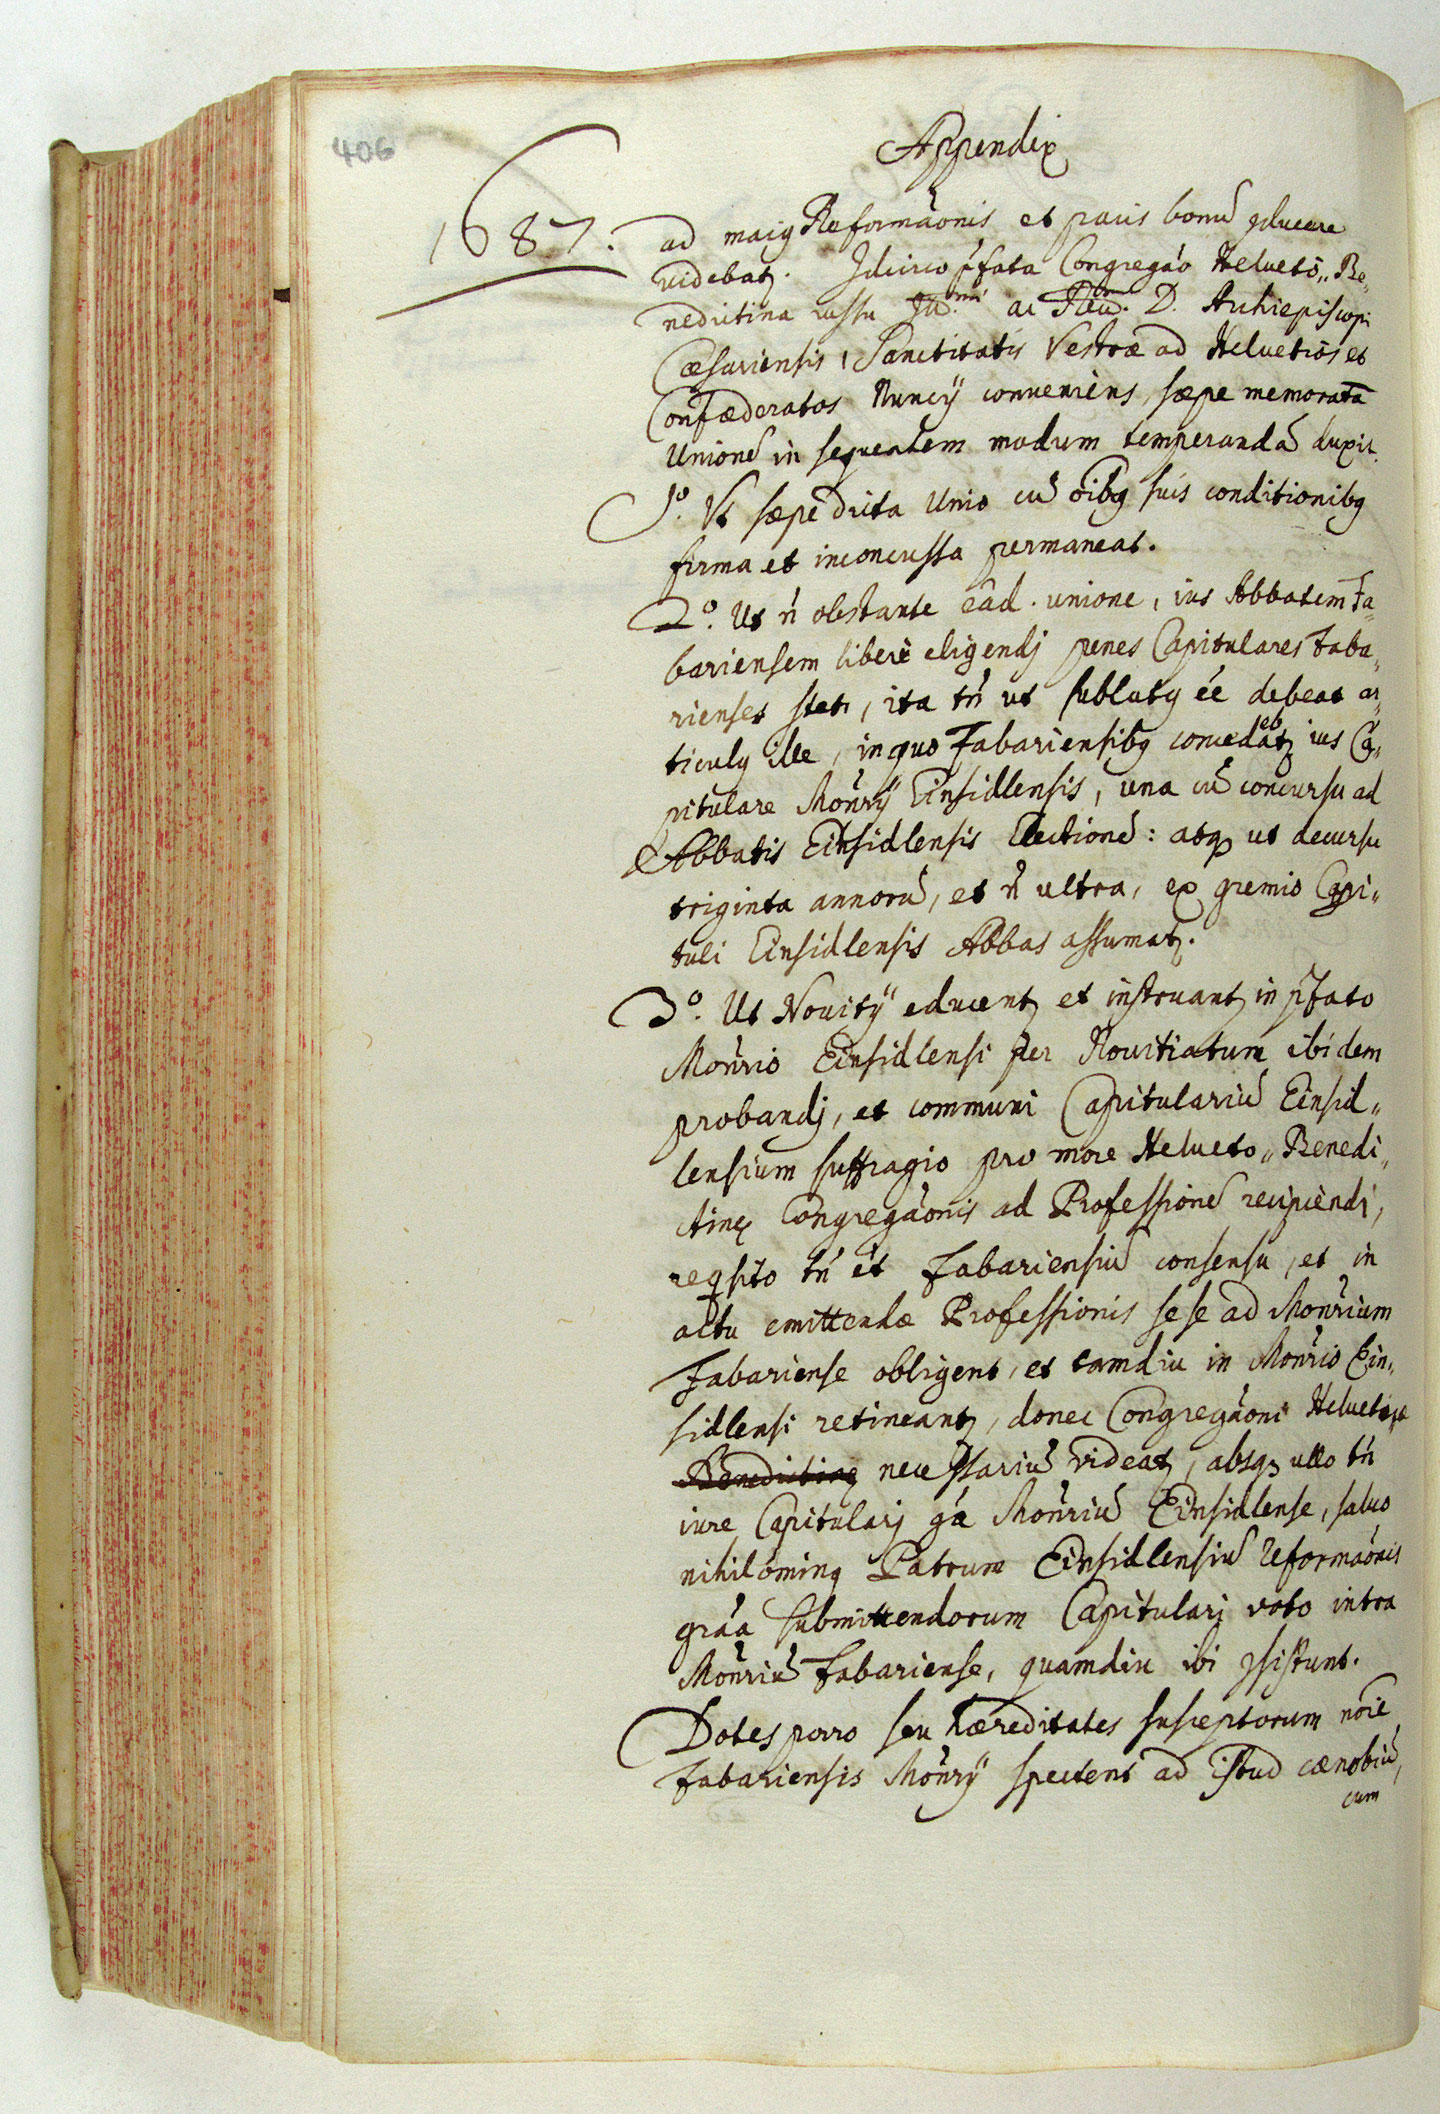 406
Appendix
1687.
ad maiꝰ Reformãonis et pacis bonũ ꝯducere
videbatꝛ. Idcirco p̃fata Congregão Helveto„Be„
nedictina iussu Ill.mi ac Reũ. D. Archiepiscopi
Cæsariensis, Sanctitatis Vestræ ad Helvetios et
Confæderatos Nuncÿ conveniens, sæpe memoratã
Unionẽ in sequentem modum temperandã duxit.
1º. Vt sæpe dicta Unio cũ oĩbꝰ suis conditionibꝰ
firma et inconcussa permaneat.
2º. Ut ñ obstante eâd. unione, ius Abbatem Fa„
bariensem liberè eligendj penes Capitulares Faba„
rienses stet, ita tñ ut sublatꝰ ẽe debeat ar„
ticulꝰ ille, in quo Fabariensibꝰ concedebatꝛ ius Ca„
pitulare Monrÿ Einsidlensis, una cũ concursu ad
Abbatis Einsidlensis Electionẽ: atqꝫ ut decursu
triginta annorũ, et ñ ultra, ex gremio Capi„
tuli Einsidlensis Abbas assumatꝛ.
3º. Ut Novitÿ educentꝛ et instruantꝛ in p̃fato
Monr̃io Einsidlensi per Novitiatum ibidem
probandj, et communi Capitulariũ Einsid„
lensium suffragio pro more Helveto„Benedi„
ctinę Congregãonis ad Professionẽ recipiendi,
reqsito tñ ẽt Fabariensiũ consensu, et in
actu emittendæ Professionis sese ad Monr̃ium
Fabariense obligent, et tamdiu in Monr̃io Ein„
sidlensi retineantꝛ, donec Congregãoni Helveticæ
Benedictinę necessariũ videatꝛ, absqꝫ ullo tñ
iure Capitularj gã Monr̃iũ Einsidlense, salvo
nihilominꝰ Patrum Einsidlensiũ Reformãonis
grãa submittendorum Capitulari voto intra
Monr̃iũ Fabariense, quamdiu ibi ꝯsistunt.
Dotes porro seu hæreditates susceptorum noĩe
Fabariensis Monr̃ÿ spectent ad istud cænobiũ,
cum